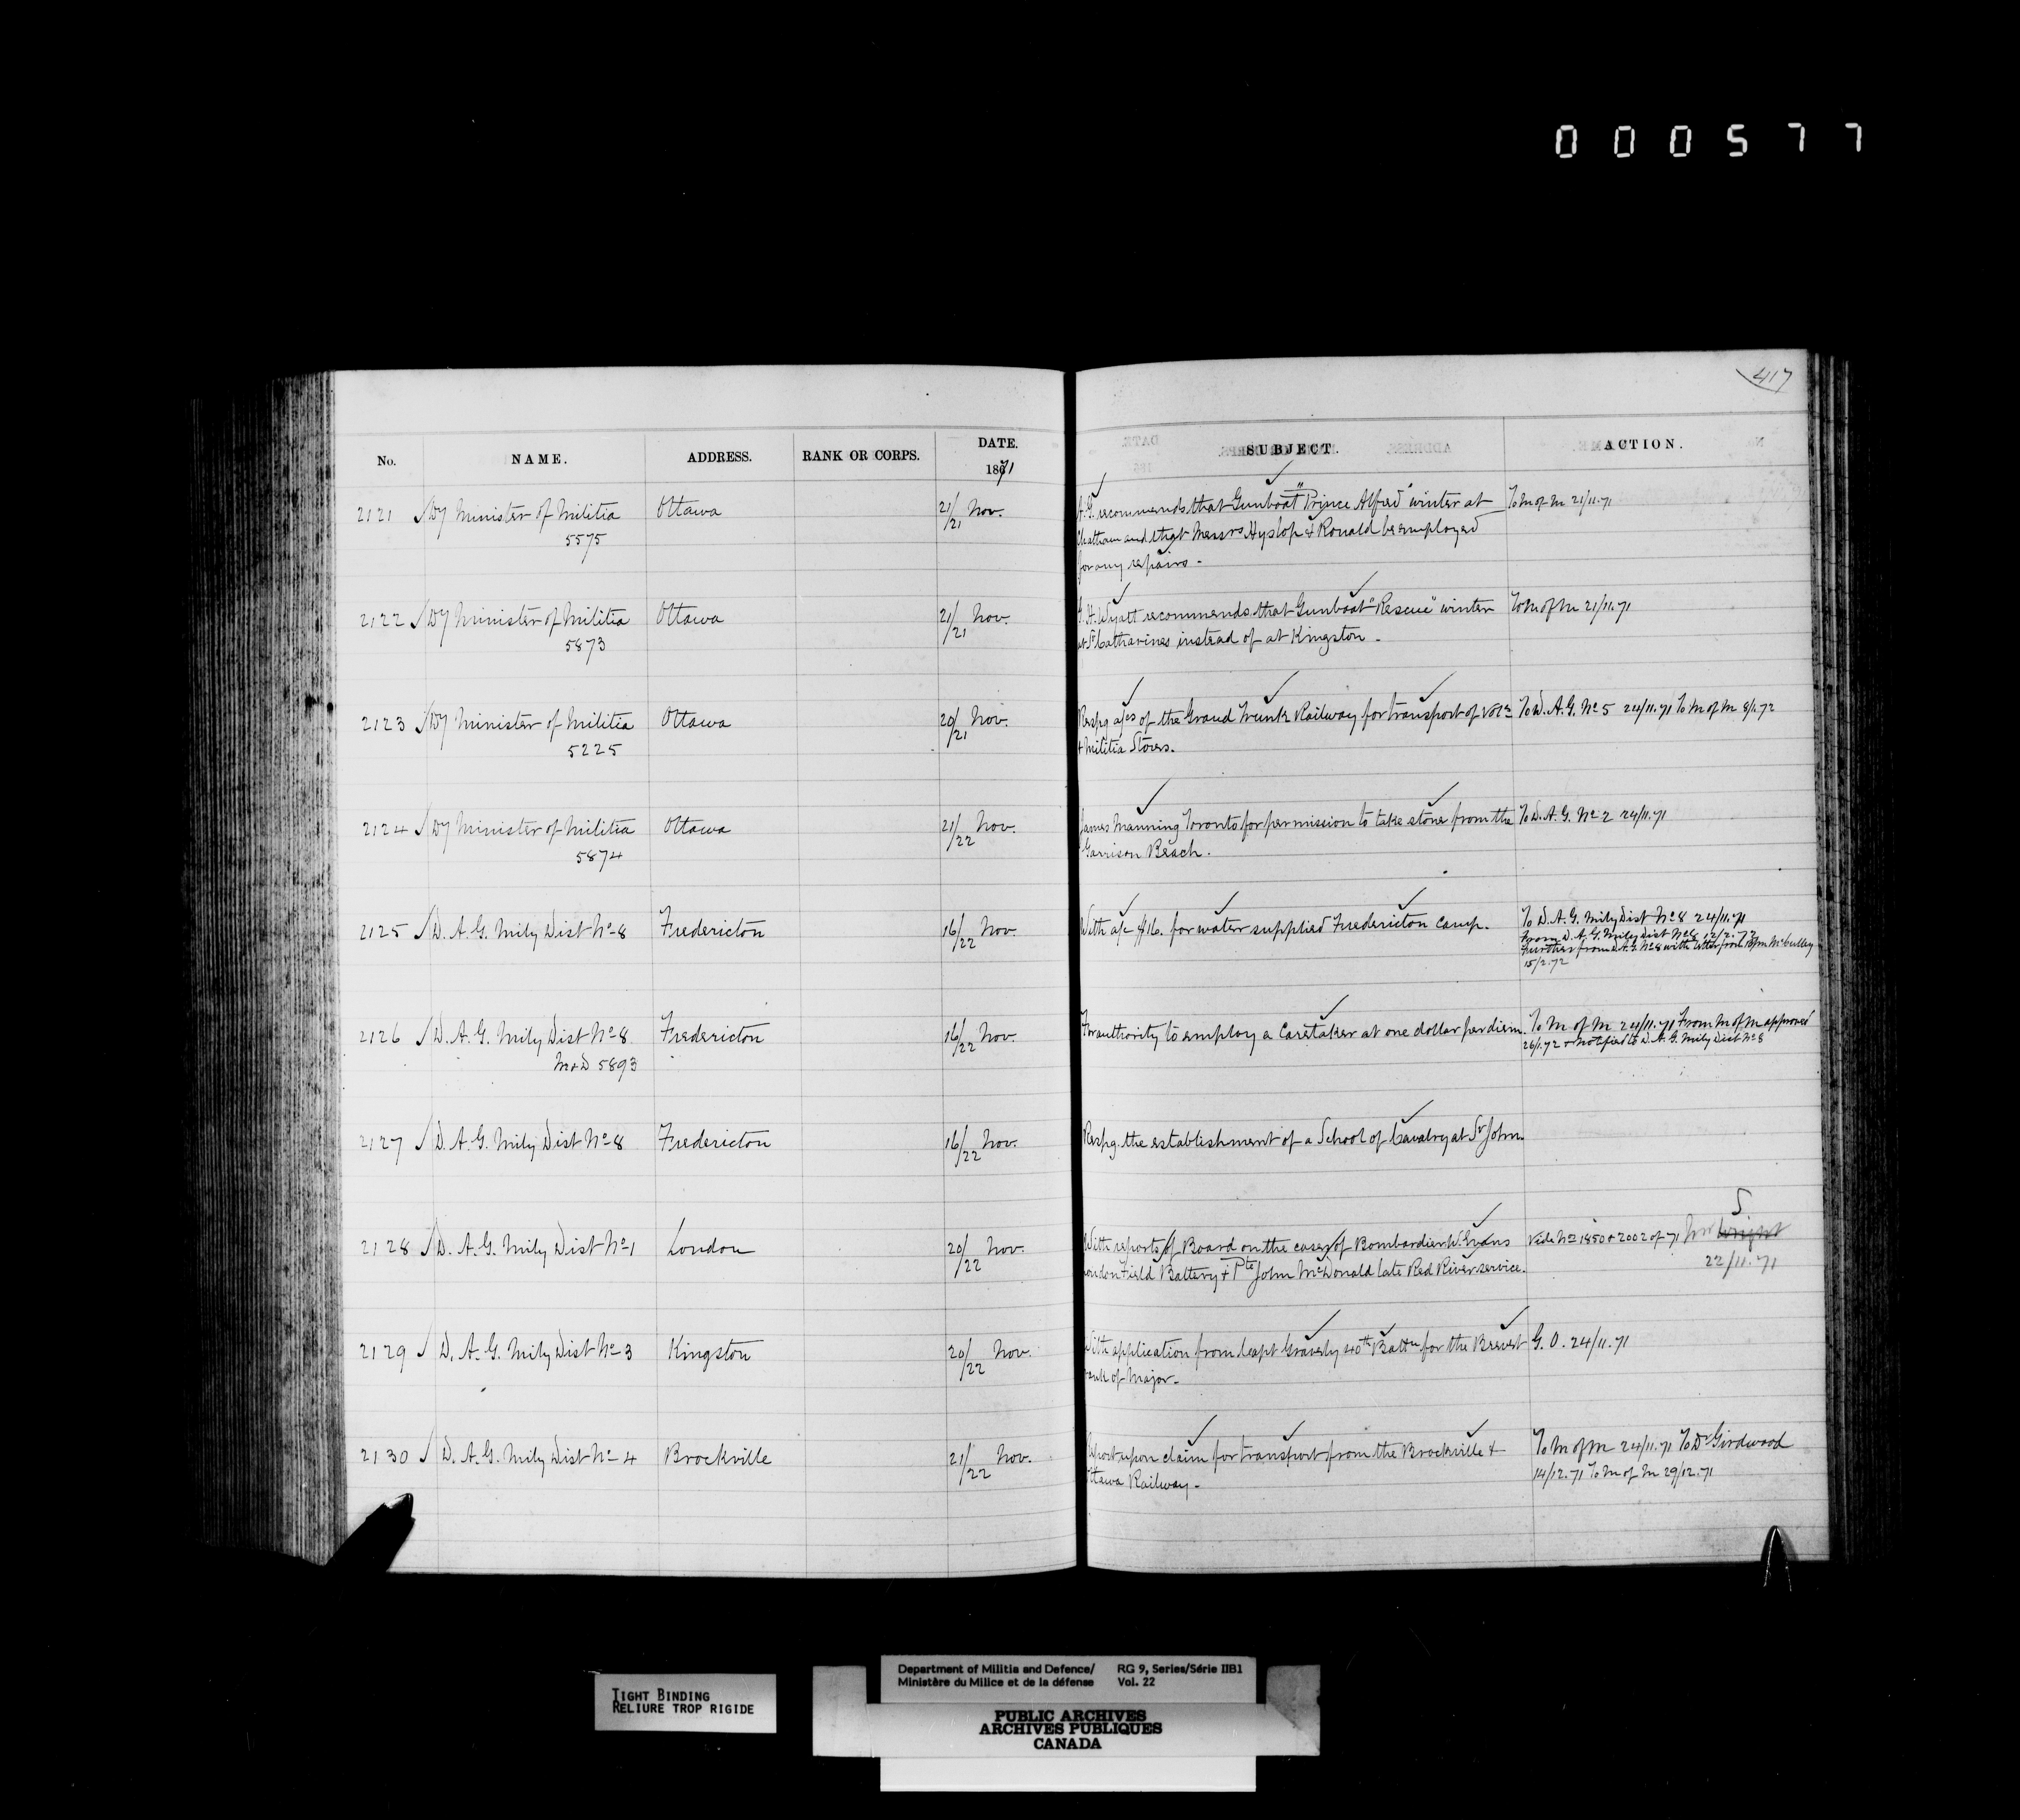 000577
417
No. NAME. ADDRESS. RANK OR CORPS. DATE. SUBJECT. ACTION.
1871
2121 Dy Minister of Militia Ottawa 21/21 Nov. A.G. recommends that Gunboat "Prince Alfred" winter at To M of M 21/11.71
5575 Chatham and that Messrs Hyslop & Ronald be employed
for any repairs.
2122 Dy Minister of Militia Ottawa 21/21 Nov. Wyatt recommends that Gunboat "Rescue" winter To M of M 21/11.71
5873 at St Catharines instead of at Kingston.
2123 Dy Minister of Militia Ottawa 20/21 Nov. Respg a/cs of the Grand Trunk Railway for transport of Vols To D.A.G. No 5 24/11.71 To M of M 8/1.72
5225 & Militia Stores.
2124 Dy Minister of Militia Ottawa 21/22 Nov. James Manning Toronto for permission to take stone from the To D.A.G. No 2 24/11.71
5874 Garrison Beach.
2125 D.A.G. Mily Dist No 8 Fredericton 16/22 Nov. With a/c $16. for water supplied Fredericton Camp. To D.A.G. Mily Dist No 8 24/11.71
From D.A.G. Mily Dist No 8 12/2.72
Further from D.A.G. No 8 with letter from
15/2.72
2126 D.A.G. Mily Dist No 8 Fredericton 16/22 Nov. For authority to employ a Caretaker at one dollar per diem. To M of M 24/11.71 From M of M approved
M&D 5893 26/1.72 & notified to D.A.G. Mily Dist No 8
2127 D.A.G. Mily Dist No 8 Fredericton 16/22 Nov. Respg. the establishment of a School of Cavalry at St John.
2128 D.A.G. Mily Dist No 1 London 20/22 Nov. With reports of Board on the cases of Bombardier W. Evans Vide No 1850 & 2002 of 71 Mr Wright
London Field Battery & Pte John McDonald late Red River service. 22/11.71
2129 D.A.G. Mily Dist No 3 Kingston 20/22 Nov. With application from Capt Gravely 40th Battn for the Brevet G.O. 24/11.71
rank of Major.
2130 D.A.G. Mily Dist No 4 Brockville 21/22 Nov. Report upon claim for transport from the Brockville & To M of M 24/11.71 To Dr Girdwood
Ottawa Railway. 14/12.71 To M of M 29/12.71
TIGHT BINDING
RELIURE TROP RIGIDE
Department of Militia and Defence/ RG 9, Series/Série IIB1
Ministère du Milice et de la défense Vol. 22
PUBLIC ARCHIVES
ARCHIVES PUBLIQUES
CANADA